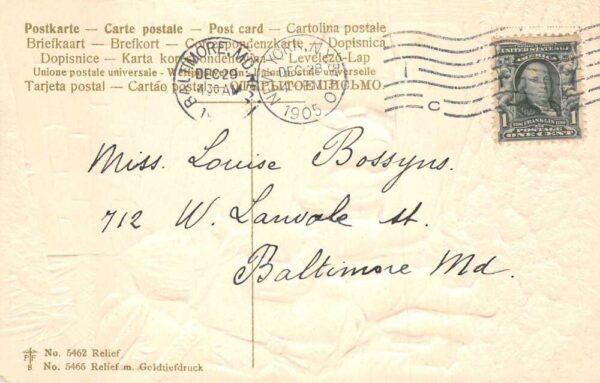 Postkarte — Carte postale — Post card — Cartolina postale
Briefkaart — Brefkort — Correspondenzkarte — Dopisnica
Dopisnice — Karta korespondencyjna — Levelező-Lap
Unione postale universale - Weltpostverein - Union postale universelle
Tarjeta postal — Cartão postal — ОТКРЫТОЕ ПИСЬМО.
BALTIMORE, MD.
DEC 29
4 30 AM
N.Y.
DEC 28
1905
C
UNITED STATES OF
AMERICA
FRANKLIN
1 POSTAGE 1
ONE CENT
Miss. Louise Bossyns.
712 W. Lanvale st.
Baltimore Md.
PF
B
No. 5462 Relief
No. 5465 Relief m. Goldtiefdruck